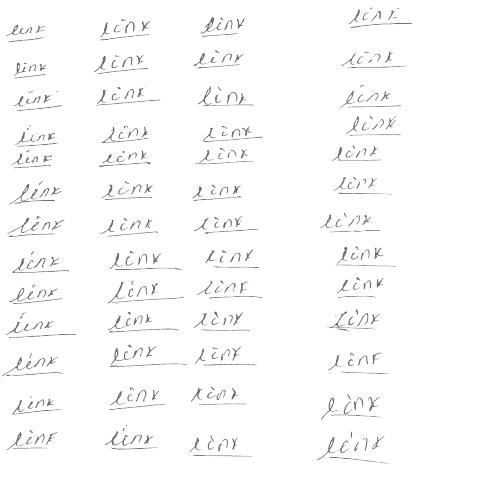 link link link link
link link link link
link link link link
link link link link
link link link link
link link link link
link link link link
link link link link
link link link link
link link link link
link link link link
link link link link
link link link link